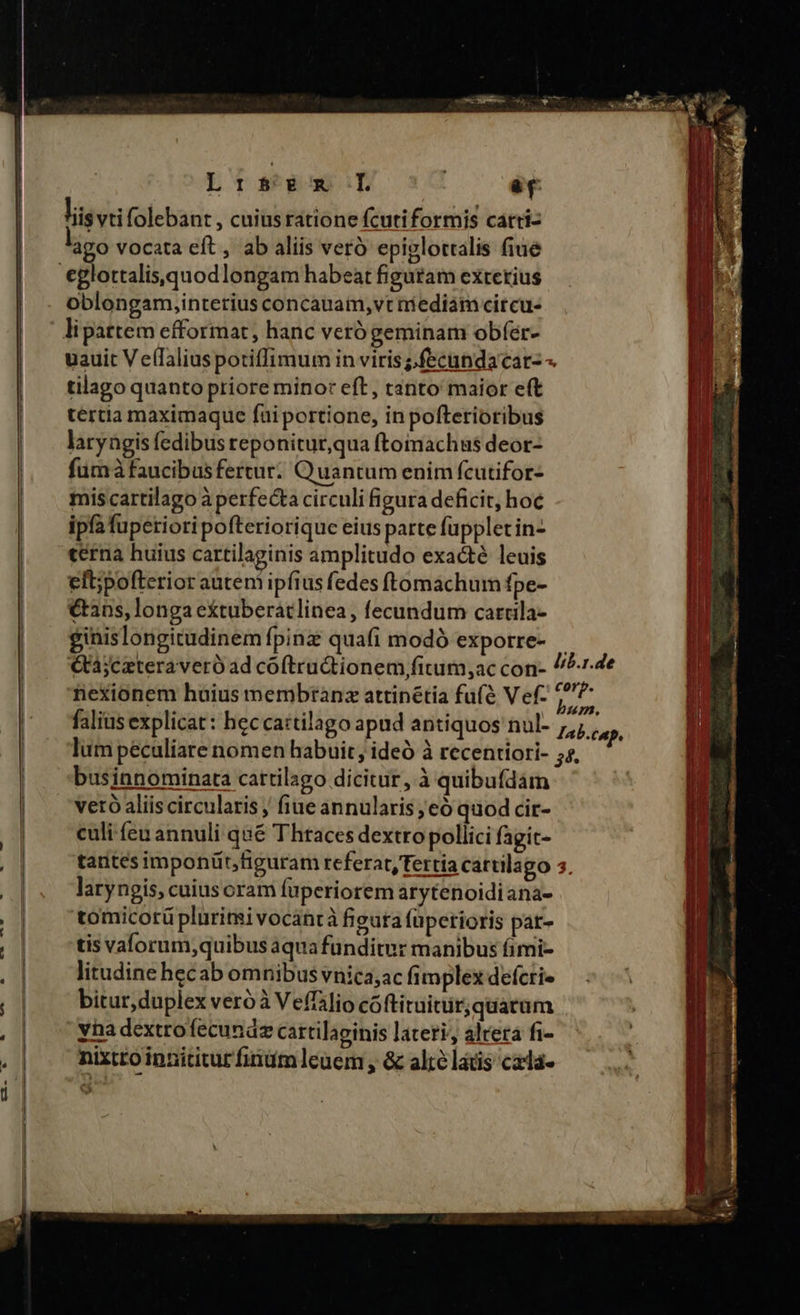 LIBER I. 25
liis vti ſolebant, cuius ratione ſcutiformis carti-
lago vocata eſt, ab aliis verò epiglottalis ſiue
eglottalis, quod longam habeat figuram exterius
oblongam, interius concauam, vt mediam circu-
li partem efformat, hanc verò geminam obſer-
uauit Veſſalius potiſſimum in viris; ſecunda car-
tilago quanto priore minor eſt, tanto maior eſt
tertia maximaque ſui portione, in poſterioribus
laryngis ſedibus reponitur, qua ſtomachus deor-
ſum à faucibus fertur. Quantum enim ſcutifor-
mis cartilago à perfecta circuli figura deficit, hoc
ipſa ſuperiori poſteriorique eius parte ſupplet in-
terna huius cartilaginis amplitudo exactè leuis
eſt; poſterior autem ipſius ſedes ſtomachum ſpe-
ctans, longa extuberat linea, ſecundum cartila-
ginis longitudinem ſpinæ quaſi modò exporre-
cta; cætera verò ad cõſtructionem, ſitum, ac con-
nexionem huius membranæ attinẽtia fuſè Veſ-
ſalius explicat: hęc cartilago apud antiquos nul-
lum peculiare nomen habuit, ideò à recentiori-
bus innominata cartilago dicitur, à quibuſdam
verò aliis circularis, ſiue annularis, eò quod cir-
culi ſeu annuli quẽ Thraces dextro pollici ſagit-
tantes imponũt, figuram referat, Tertia cartilago
laryngis, cuius oram ſuperiorem arytenoidi ana-
tomicorũ plurimi vocant à figura ſuperioris par-
tis vaſorum, quibus aqua funditur manibus ſimi-
litudine hęc ab omnibus vnica, ac ſimplex deſcri-
bitur, duplex verò à Veſſalio cõſtituitur, quarum
vna dextro ſecundæ cartilaginis lateri, altera ſi-
niſtro innititur ſinum leuem, & altè latis cæla-
lib. 1. de
corp.
hum.
fab. cap.
38.
3.